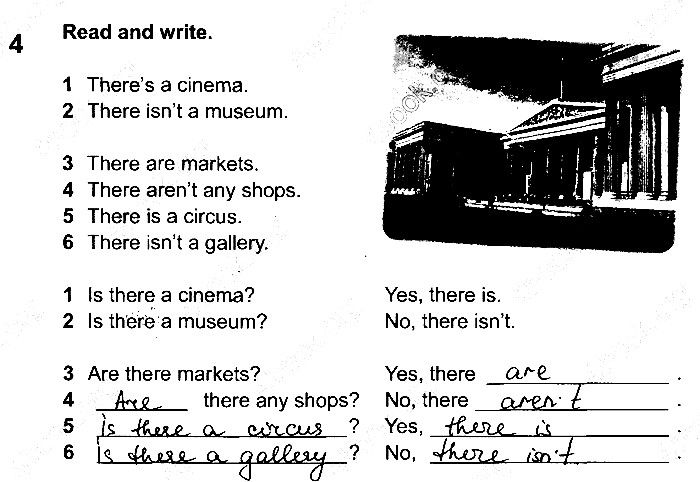 4 Read and write.
1 There's a cinema.
2 There isn't a museum.
3 There are markets.
4 There aren't any shops.
5 There is a circus.
6 There isn't a gallery.
1 Is there a cinema? Yes, there is.
2 Is there a museum? No, there isn't.
3 Are there markets? Yes, there are.
4 Are there any shops? No, there aren't.
5 Is there a circus? Yes, there is.
6 Is there a gallery? No, there isn't.